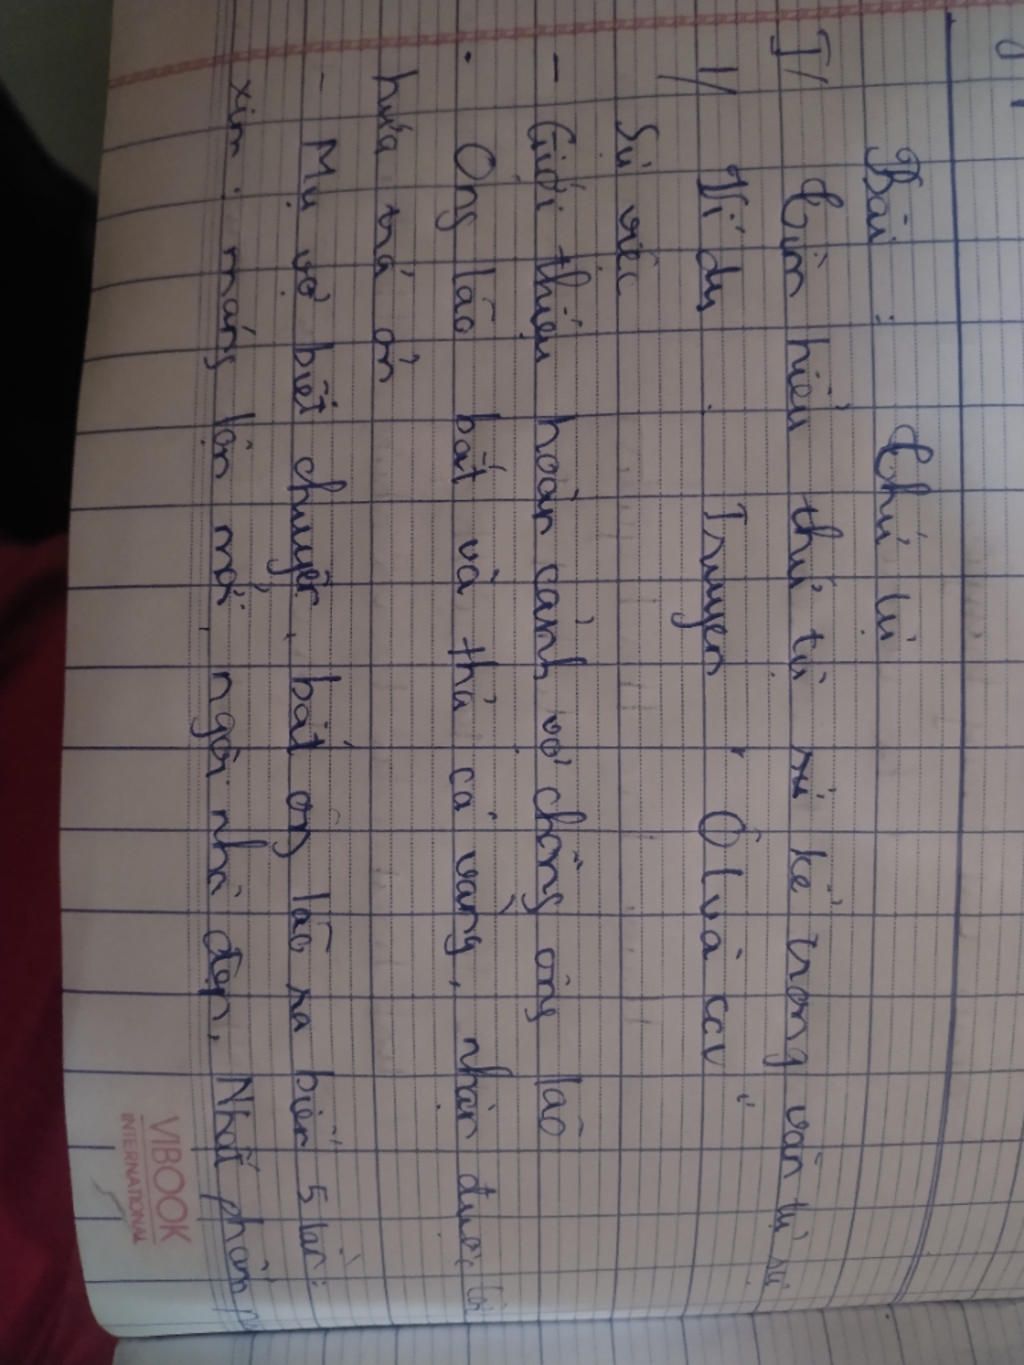 Bài : Thứ tự
I/ Tìm hiểu thứ tự sự kể trong văn tự sự
1/ Ví dụ. Truyện " ÔL và CCV "
Sự việc
- Giới thiệu hoàn cảnh vợ chồng ông lão
. Ông lão bắt và thả cá vàng, nhận được lời
hứa trả ơn
- Mụ vợ biết chuyện, bắt ông lão ra biển 5 lần:
xin: máng lợn mới, ngôi nhà đẹp, Nhất phẩm
VIBOOK
INTERNATIONAL